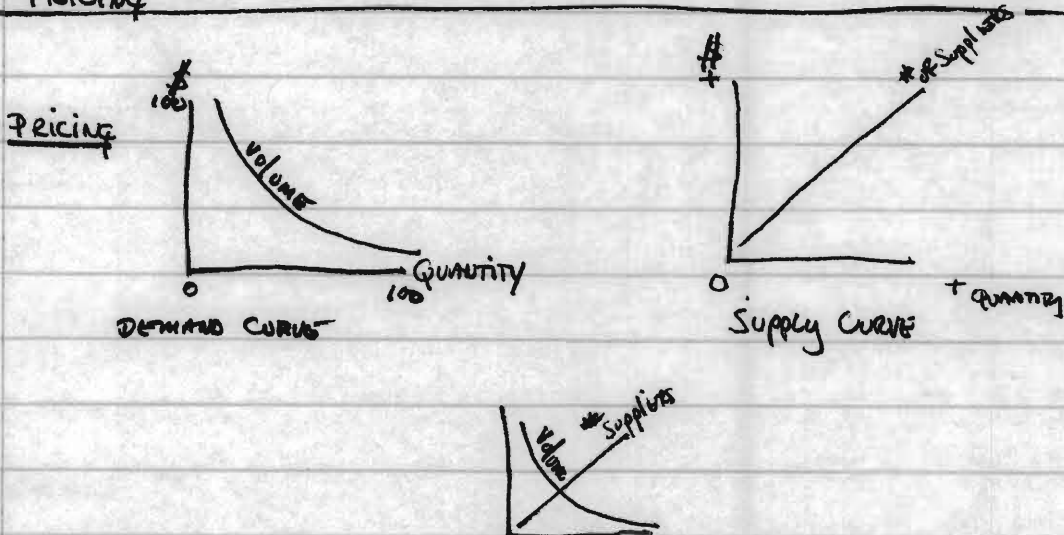 PRICING
PRICING
$
100
VOLUME
0
100
QUANTITY
DEMAND CURVE
$
+
# OF Suppliers
0
+ QUANTITY
Supply CURVE
Volume
# Suppliers